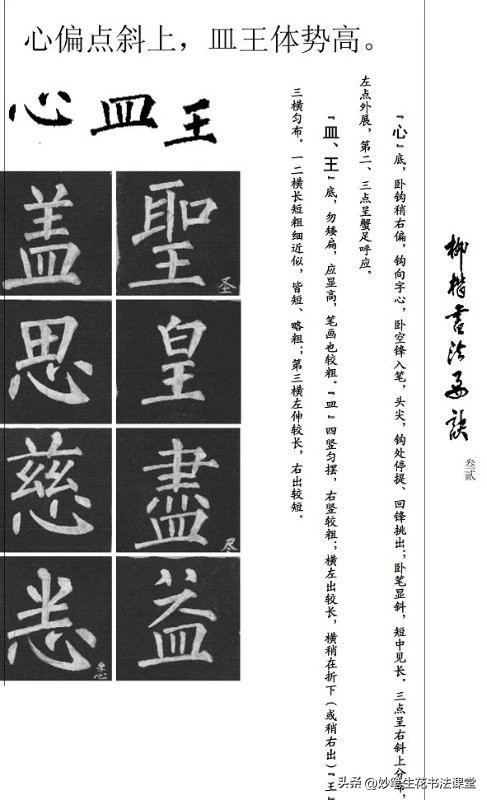 心偏点斜上，皿王体势高。
心皿王
柳楷书法要诀
叁贰
『心』底，卧钩稍右偏，钩向字心，卧空锋入笔，头尖，钩处停提、回锋挑出；卧笔显斜，短中见长。三点呈右斜上分布，
左点外展，第二、三点呈蟹足呼应。
『皿、王』底，勿矮扁，应显高，笔画也较粗。『皿』四竖匀摆，右竖较粗；横左出较长，横稍在折下（或稍右出）『王』
三横匀布。一二横长短粗细近似，皆短、略粗；第三横左伸较长，右出较短。
聖 圣
皇
盡 尽
益
盖
思
慈
恙
头条 @妙笔生花书法课堂